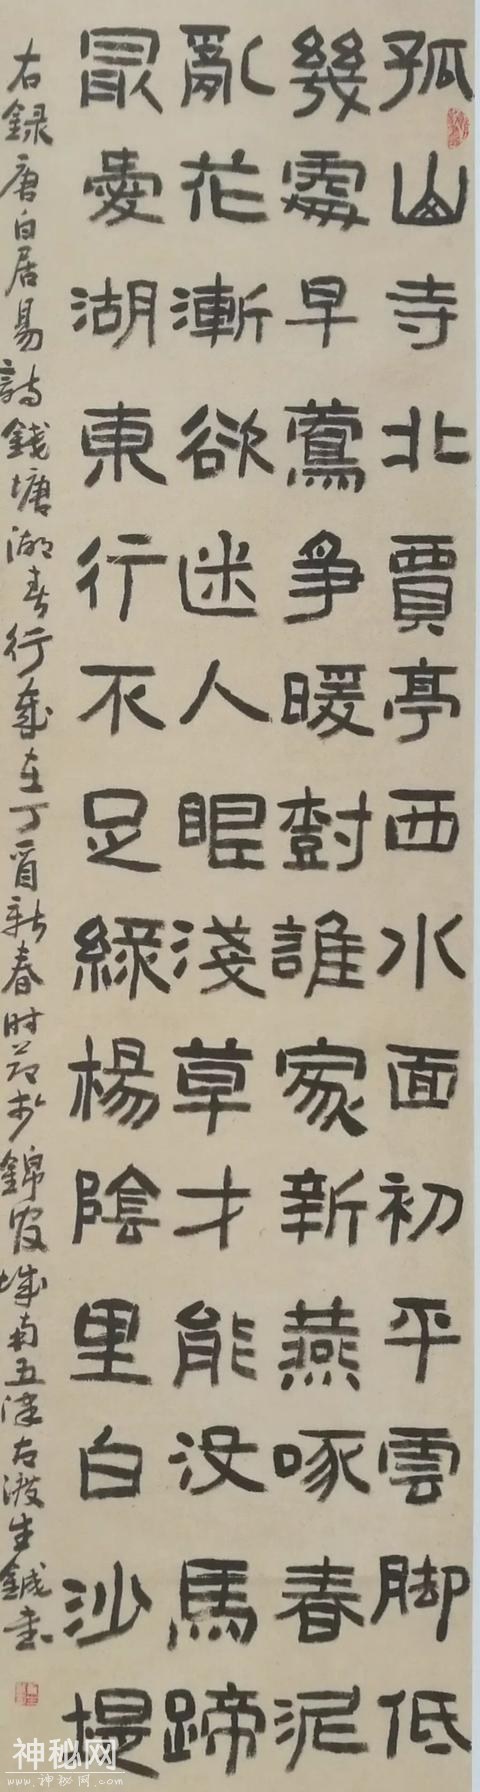 孤山寺北賈亭西水面初平雲脚低
幾處早鶯爭暖樹誰家新燕啄春泥
亂花漸欲迷人眼淺草才能没馬蹄
最愛湖東行不足綠楊陰里白沙堤
右録唐白居易詩錢塘湖春行歲在丁酉新春时节於錦官城南五津古渡生鍼書
神秘网
www.神秘网.com